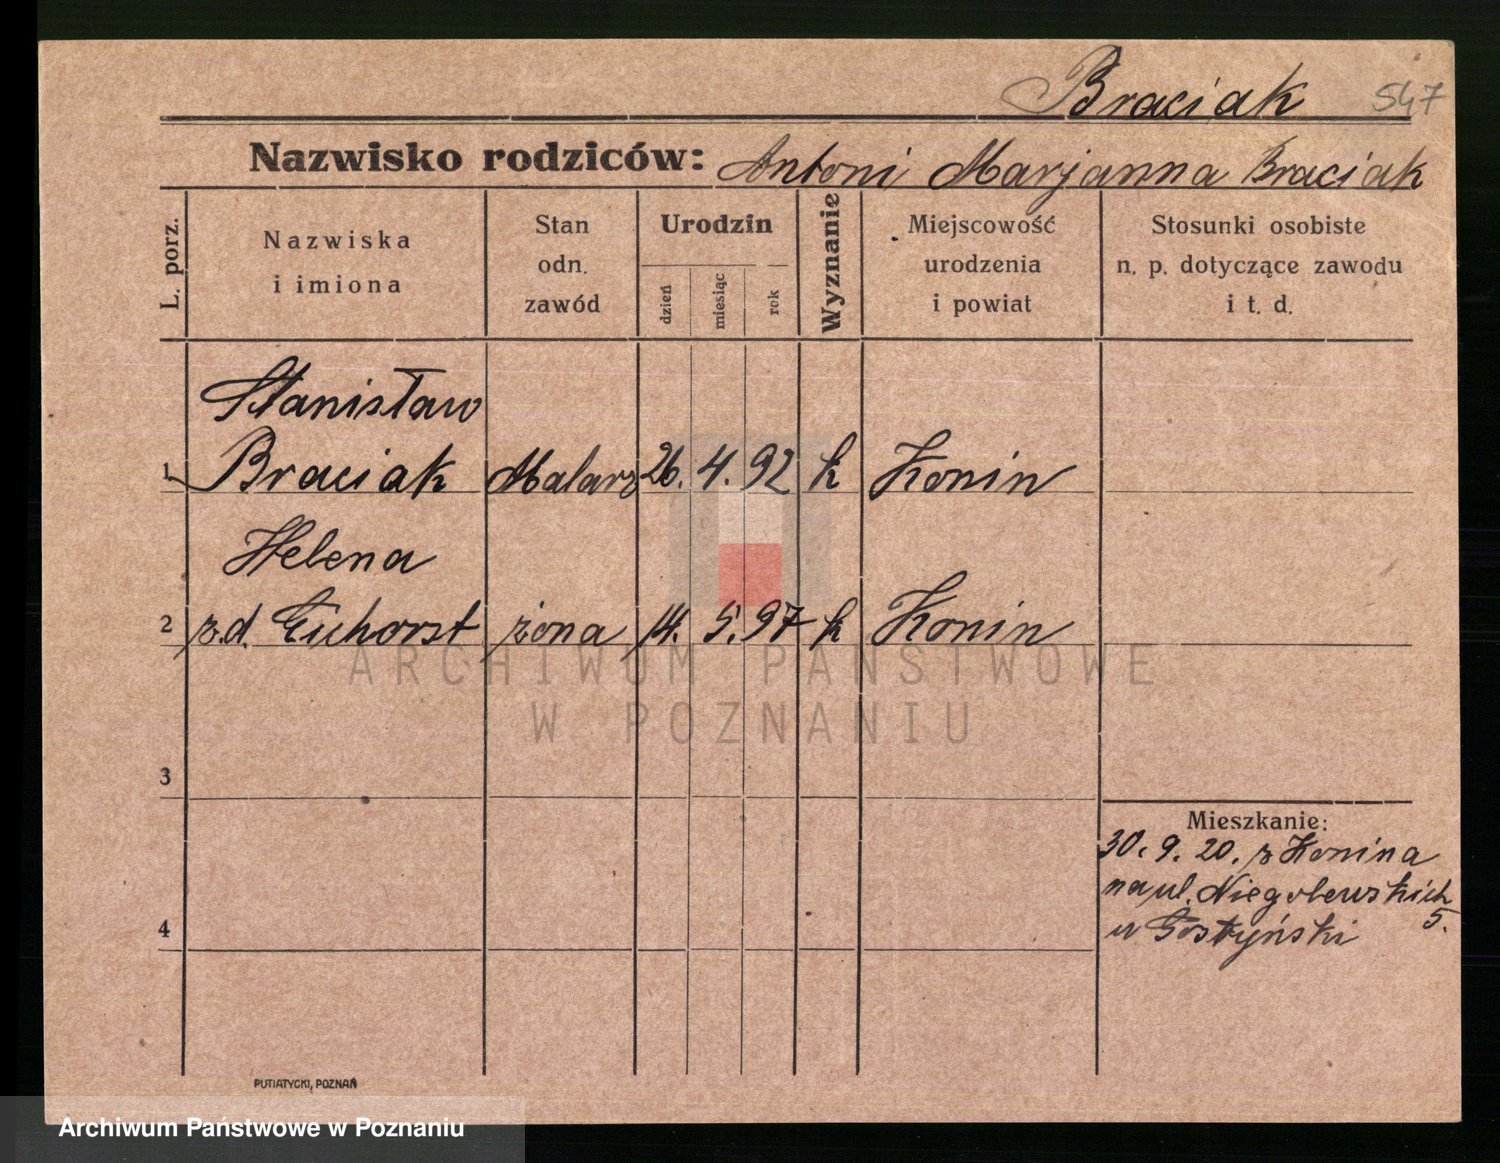 Braciak 547
Nazwisko rodziców: Antoni Marjanna Braciak
L. porz.
Nazwiska
i imiona
Stan
odn.
zawód
Urodzin
dzień
miesiąc
rok
Wyznanie
Miejscowość
urodzenia
i powiat
Stosunki osobiste
n. p. dotyczące zawodu
i t. d.
Stanisław
1 Braciak Malarz 26. 4. 92 k Konin
Helena
2 z.d. Eichorst żona 14. 5. 97 k Konin
ARCHIWUM PAŃSTWOWE
W POZNANIU
3
Mieszkanie:
30. 9. 20. z Konina
na ul. Niegolewskich
5.
4
u Gostyński
PUTIATYCKI, POZNAŃ
Archiwum Państwowe w Poznaniu